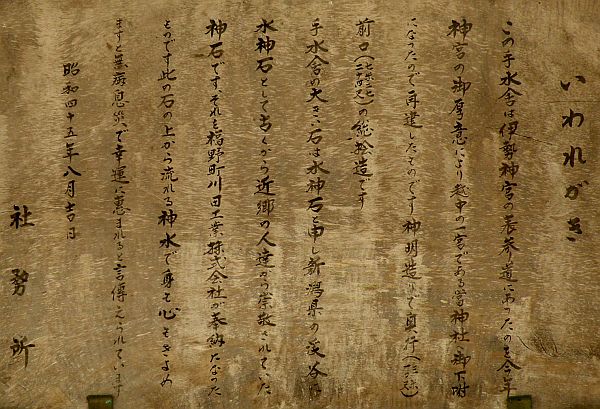 いわれがき
この手水舎は伊勢神宮の表参道にあったのを今年
神宮の御厚意により越中の一宮である当神社に御下附
になったので再建したものです神明造りて奥行
前口の総桧造です
手水舎の大きい石は水神石と申し新潟県の渓谷に
水神石として古くから近郷の人達から崇敬されていた
神石です、それを福野町川田工業株式会社が奉納になった
ものです此の石の上から流れる神水で身も心もきよめ
ますと無病息災で幸運に恵まれると言傳えられています
昭和四十五年八月吉日
社務所